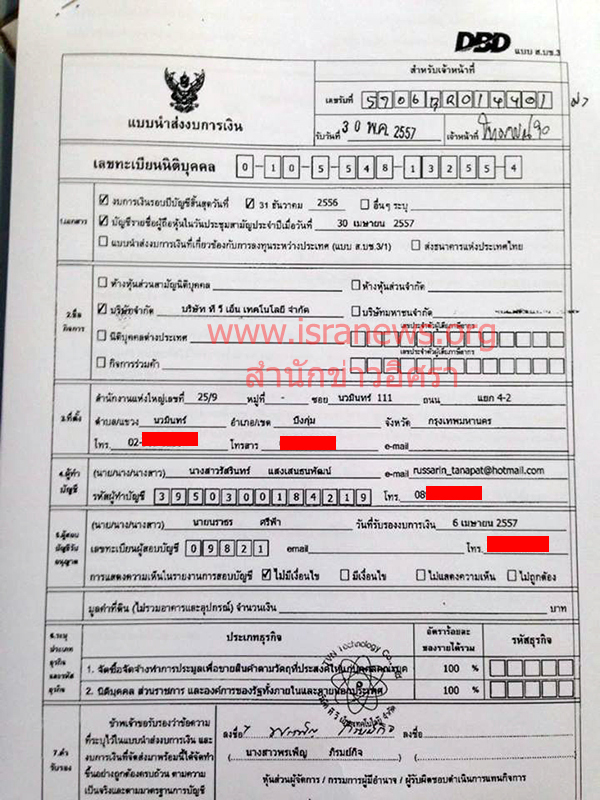 DBD แบบ ส.บช.3
สำหรับเจ้าหน้าที่
แบบนำส่งงบการเงิน
เลขรับที่
รับวันที่ 30 พ.ค. 2557 เจ้าหน้าที่
เลขทะเบียนนิติบุคคล 0-10-5-548-13255-4
1.เอกสาร
งบการเงินรอบปีบัญชีสิ้นสุดวันที่ 31 ธันวาคม 2556 อื่นๆ ระบุ
บัญชีรายชื่อผู้ถือหุ้นในวันประชุมสามัญประจำปีเมื่อวันที่ 30 เมษายน 2557
แบบนำส่งงบการเงินที่เกี่ยวข้องกับการลงทุนระหว่างประเทศ (แบบ ส.บช.3/1) ส่งธนาคารแห่งประเทศไทย
2.ชื่อกิจการ
ห้างหุ้นส่วนสามัญนิติบุคคล ห้างหุ้นส่วนจำกัด
บริษัทจำกัด บริษัท ที วี เอ็น เทคโนโลยี จำกัด บริษัทมหาชนจำกัด
เลขประจำตัวผู้เสียภาษีอากร
นิติบุคคลต่างประเทศ
เลขประจำตัวผู้เสียภาษีอากร
กิจการร่วมค้า
www.isranews.org
สำนักข่าวอิศรา
3.ที่ตั้ง
สำนักงานแห่งใหญ่เลขที่ 25/9 หมู่ที่ - ซอย นวมินทร์ 111 ถนน แยก 4-2
ตำบล/แขวง นวมินทร์ อำเภอ/เขต บึงกุ่ม จังหวัด กรุงเทพมหานคร
โทร. 02- โทรสาร e-mail
4.ผู้ทำบัญชี
(นาย/นาง/นางสาว) นางสาวรัสรินทร์ แสงเสนธนพัฒน์ e-mail russarin_tanapat@hotmail.com
รหัสผู้ทำบัญชี 3950300184219 โทร. 08
5.ผู้สอบบัญชีรับอนุญาต
(นาย/นาง/นางสาว) นายนราธร ศรีฟ้า วันที่รับรองงบการเงิน 6 เมษายน 2557
เลขทะเบียนผู้สอบบัญชี 09821 email โทร.
การแสดงความเห็นในรายงานการสอบบัญชี ไม่มีเงื่อนไข มีเงื่อนไข ไม่แสดงความเห็น ไม่ถูกต้อง
มูลค่าที่ดิน (ไม่รวมอาคารและอุปกรณ์) จำนวนเงิน บาท
6.ระบุประเภทธุรกิจและรหัสธุรกิจ
ประเภทธุรกิจ อัตราร้อยละของรายได้รวม รหัสธุรกิจ
1. จัดซื้อจัดจ้างทำการประมูลเพื่อขายสินค้าตามวัตถุที่ประสงค์ให้แก่บุคคลคณะบุคคล 100 %
2. นิติบุคคล ส่วนราชการ และองค์การของรัฐทั้งภายในและภายนอกประเทศ 100 %
TVN Technology Co.
7.คำรับรอง
ข้าพเจ้าขอรับรองว่าข้อความ
ที่ระบุไว้ในแบบนำส่งงบการเงิน และ
งบการเงินที่จัดส่งมาพร้อมนี้ได้จัดทำ
ขึ้นอย่างถูกต้องครบถ้วน ตามความ
เป็นจริงและตามมาตรฐานการบัญชี
ลงชื่อ ลงชื่อ
( นางสาวพรเพ็ญ ภิรมย์กิจ )
หุ้นส่วนผู้จัดการ / กรรมการผู้มีอำนาจ / ผู้รับผิดชอบดำเนินการแทนกิจการ